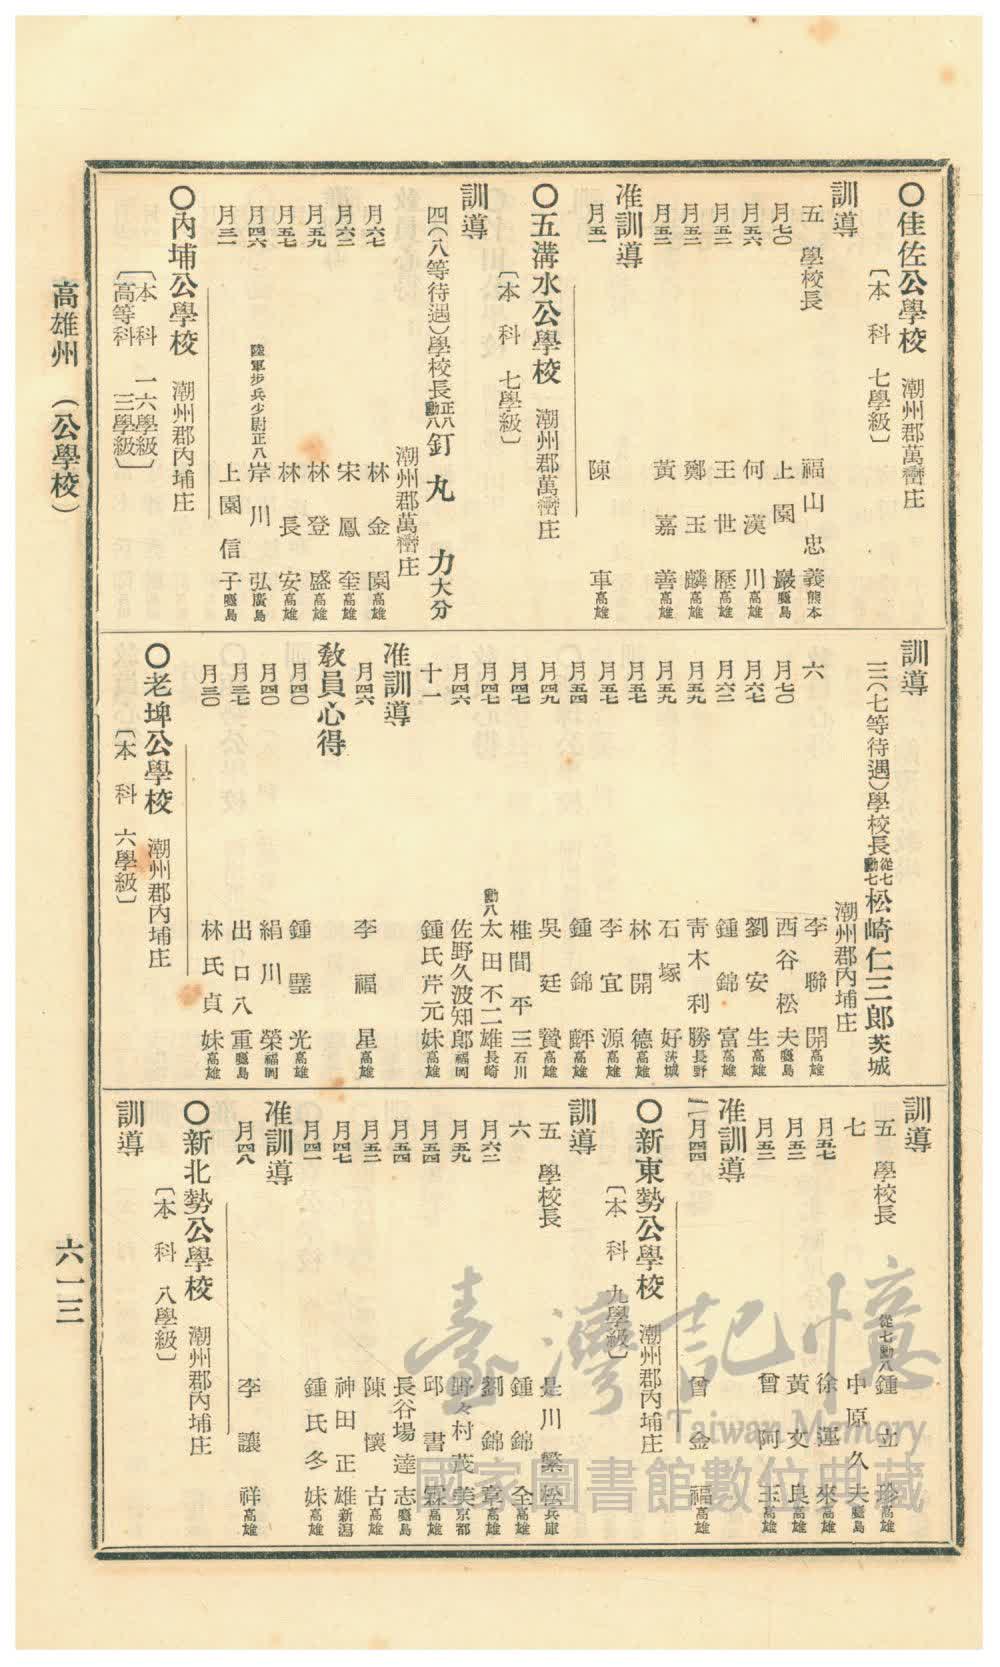 〇佳佐公學校　潮州郡萬巒庄
〔本　科　七學級〕
訓導
五　學校長　福山忠義熊本
月七〇　上園　巖鹿兒島
月五六　何漢川高雄
月五三　王世歷高雄
月五三　鄭玉麟高雄
月五三　黃嘉善高雄
准訓導
月五一　陳　車高雄
〇五溝水公學校　潮州郡萬巒庄
〔本　科　七學級〕
訓導　潮州郡萬巒庄
四（八等待遇）學校長正八勳八釘丸　力大分
月六七　林金園高雄
月六三　宋鳳奎高雄
月五九　林登盛高雄
月五七　林長安高雄
月四六　陸軍步兵少尉正八岸川　弘廣島
月三一　上園信子鹿兒島
〇內埔公學校　潮州郡內埔庄
〔本　科　一六學級
高等科　三學級〕
訓導　潮州郡內埔庄
三（七等待遇）學校長從七勳七松崎仁三郎茨城
六　李聯開高雄
月七〇　西谷松夫鹿兒島
月六七　劉安生高雄
月六三　鍾錦富高雄
月五九　靑木利勝長野
月五九　石塚　好茨城
月五七　林開德高雄
月五七　李宜源高雄
月五四　鍾錦評高雄
月四九　吳廷贊高雄
月四七　椎間平三石川
月四七　勳八太田不二雄長崎
月四六　佐野久波知郎福岡
十一　鍾氏芹元妹高雄
准訓導
月四六　李福星高雄
敎員心得
月四〇　鍾璽光高雄
月四〇　絹川　榮福岡
月三七　出口八重鹿兒島
月三〇　林氏貞妹高雄
〇老埤公學校　潮州郡內埔庄
〔本　科　六學級〕
訓導
五　學校長　從七勳八鍾立珍高雄
七　中原久夫鹿兒島
月五七　徐運來高雄
月五三　黃文良高雄
月五三　曾阿玉高雄
准訓導
二月四四　曾金福高雄
〇新東勢公學校　潮州郡內埔庄
〔本　科　九學級〕
訓導
五　學校長　是川繁松兵庫
六　鍾錦全高雄
月六三　劉錦章高雄
月五九　野々村茂美京都
月五四　邱書霖高雄
月五四　長谷場達志鹿兒島
月五三　陳懷古高雄
月四七　神田正雄新潟
月四一　鍾氏冬妹高雄
准訓導
月四八　李讓祥高雄
〇新北勢公學校　潮州郡內埔庄
〔本　科　八學級〕
訓導
高雄州（公學校）
六一三
臺灣記憶
Taiwan Memory
國家圖書館數位典藏